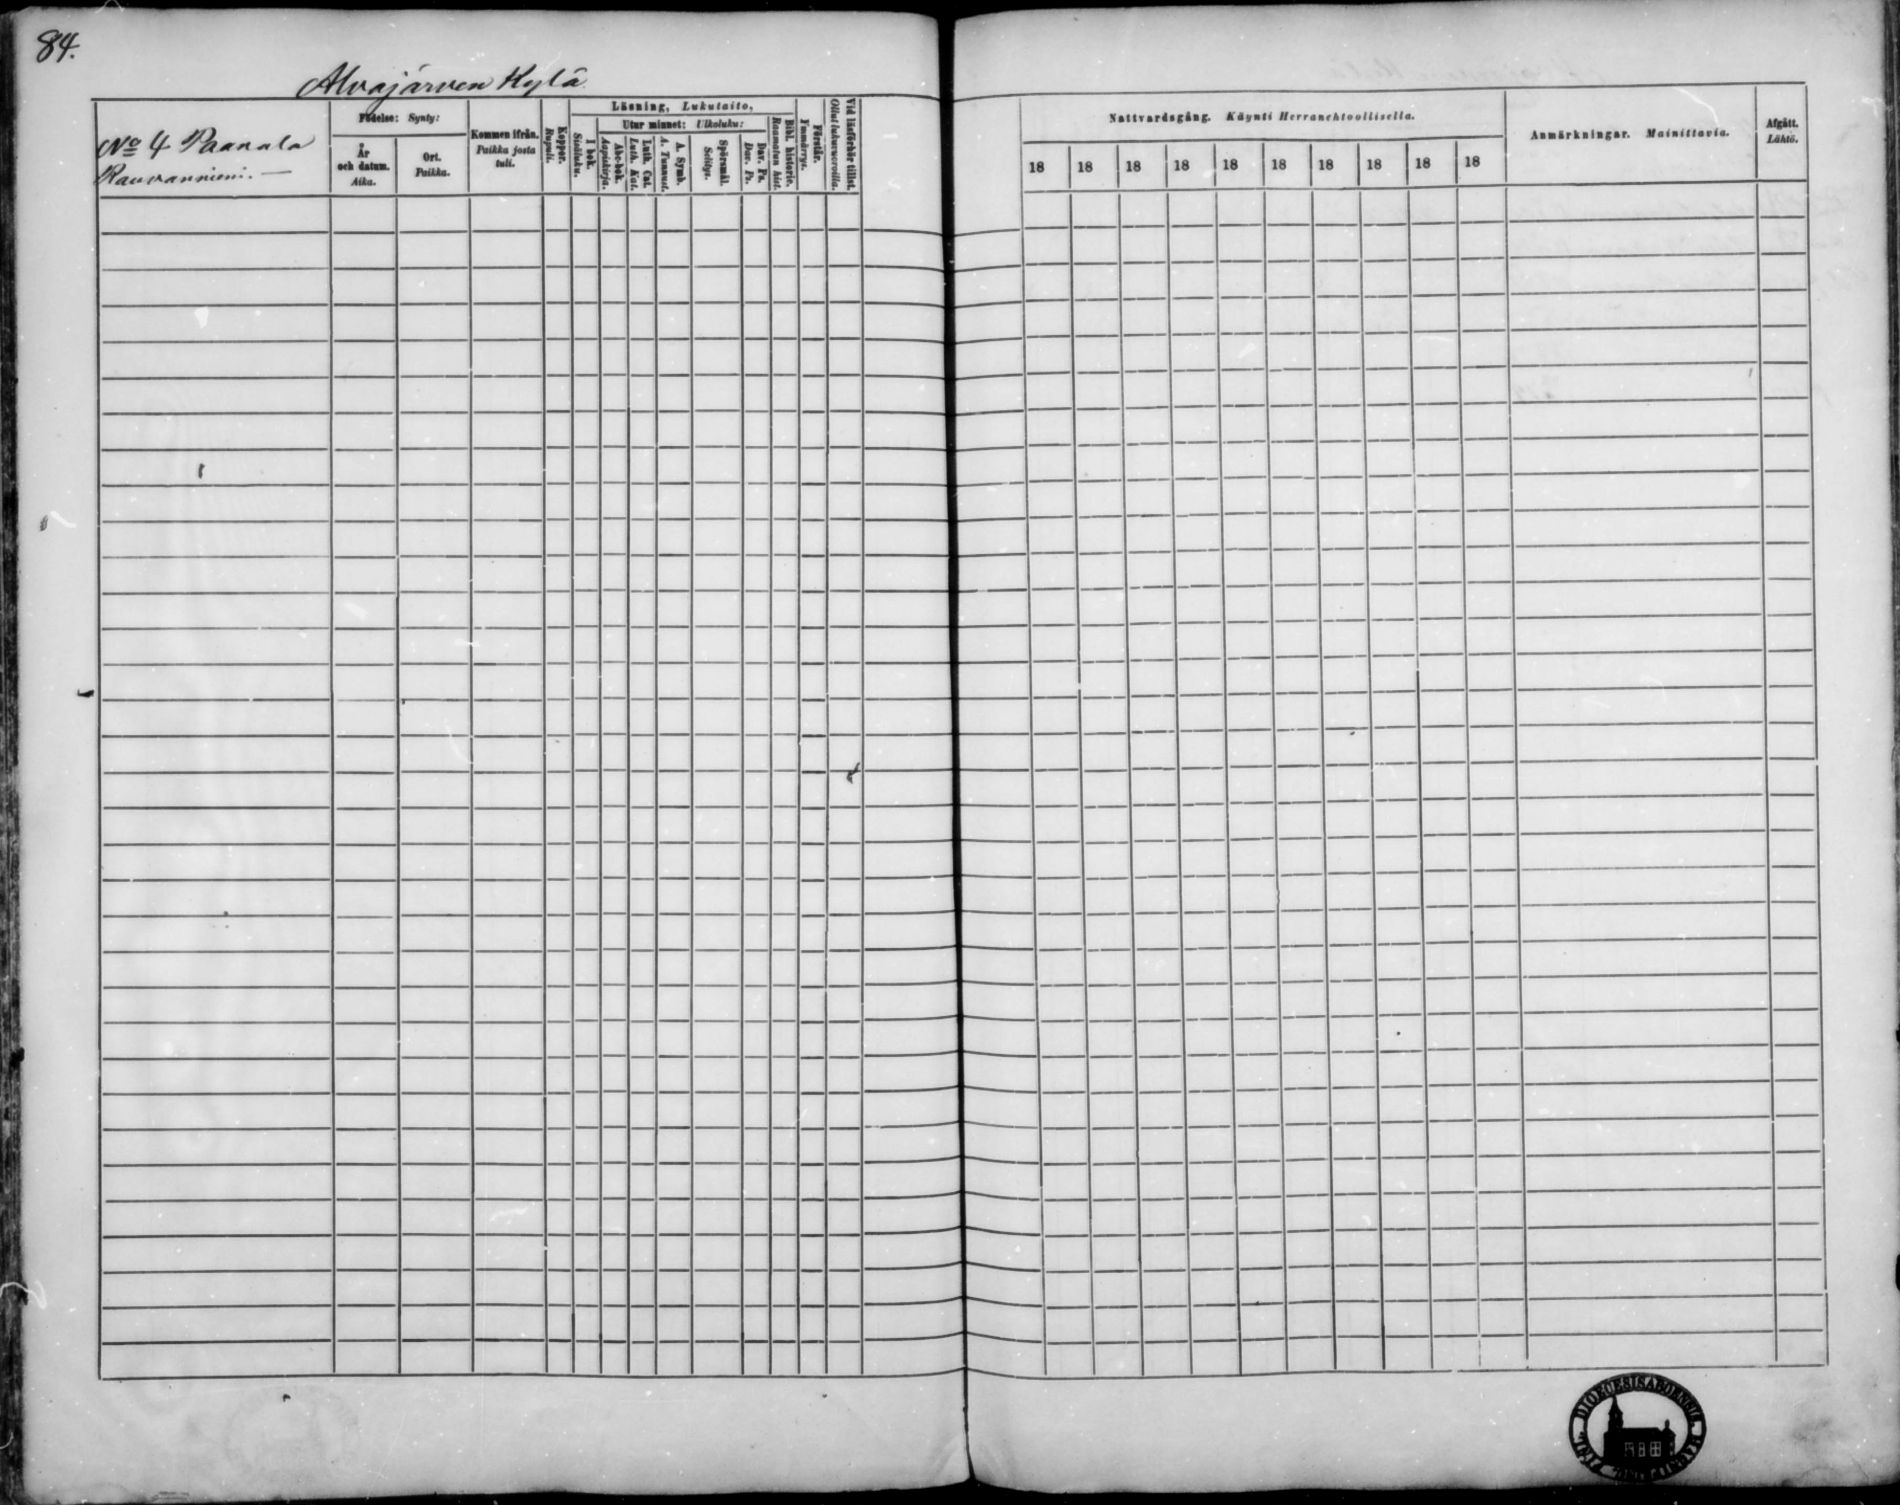 84.
Alvajärven Kylä
No 4 Paanala
Rauvanniemi. —
Födelse: Synty:
År
och datum.
Aika.
Ort.
Paikka.
Kommen ifrån.
Paikka josta
tuli.
Koppor.
Rupuli.
Läsning, Lukutaito,
I bok.
Sisäluku.
Utur minnet: Ulkoluku:
Abc-bok.
Aapiskirja.
Luth. Cat.
Luth. Kat.
A. Symb.
A. Tunnust.
Spörsmål.
Selitys.
Dav. Ps.
Dav. Ps.
Bibl. historie.
Raamatun hist.
Förstår.
Ymmärrys.
Vid läsförhör tillst.
Ollut lukuvuoroilla.
Nattvardsgång. Käynti Herranehtoollisella.
18 18 18 18 18 18 18 18 18 18
Anmärkningar. Mainittavia.
Afgått.
Lähtö.